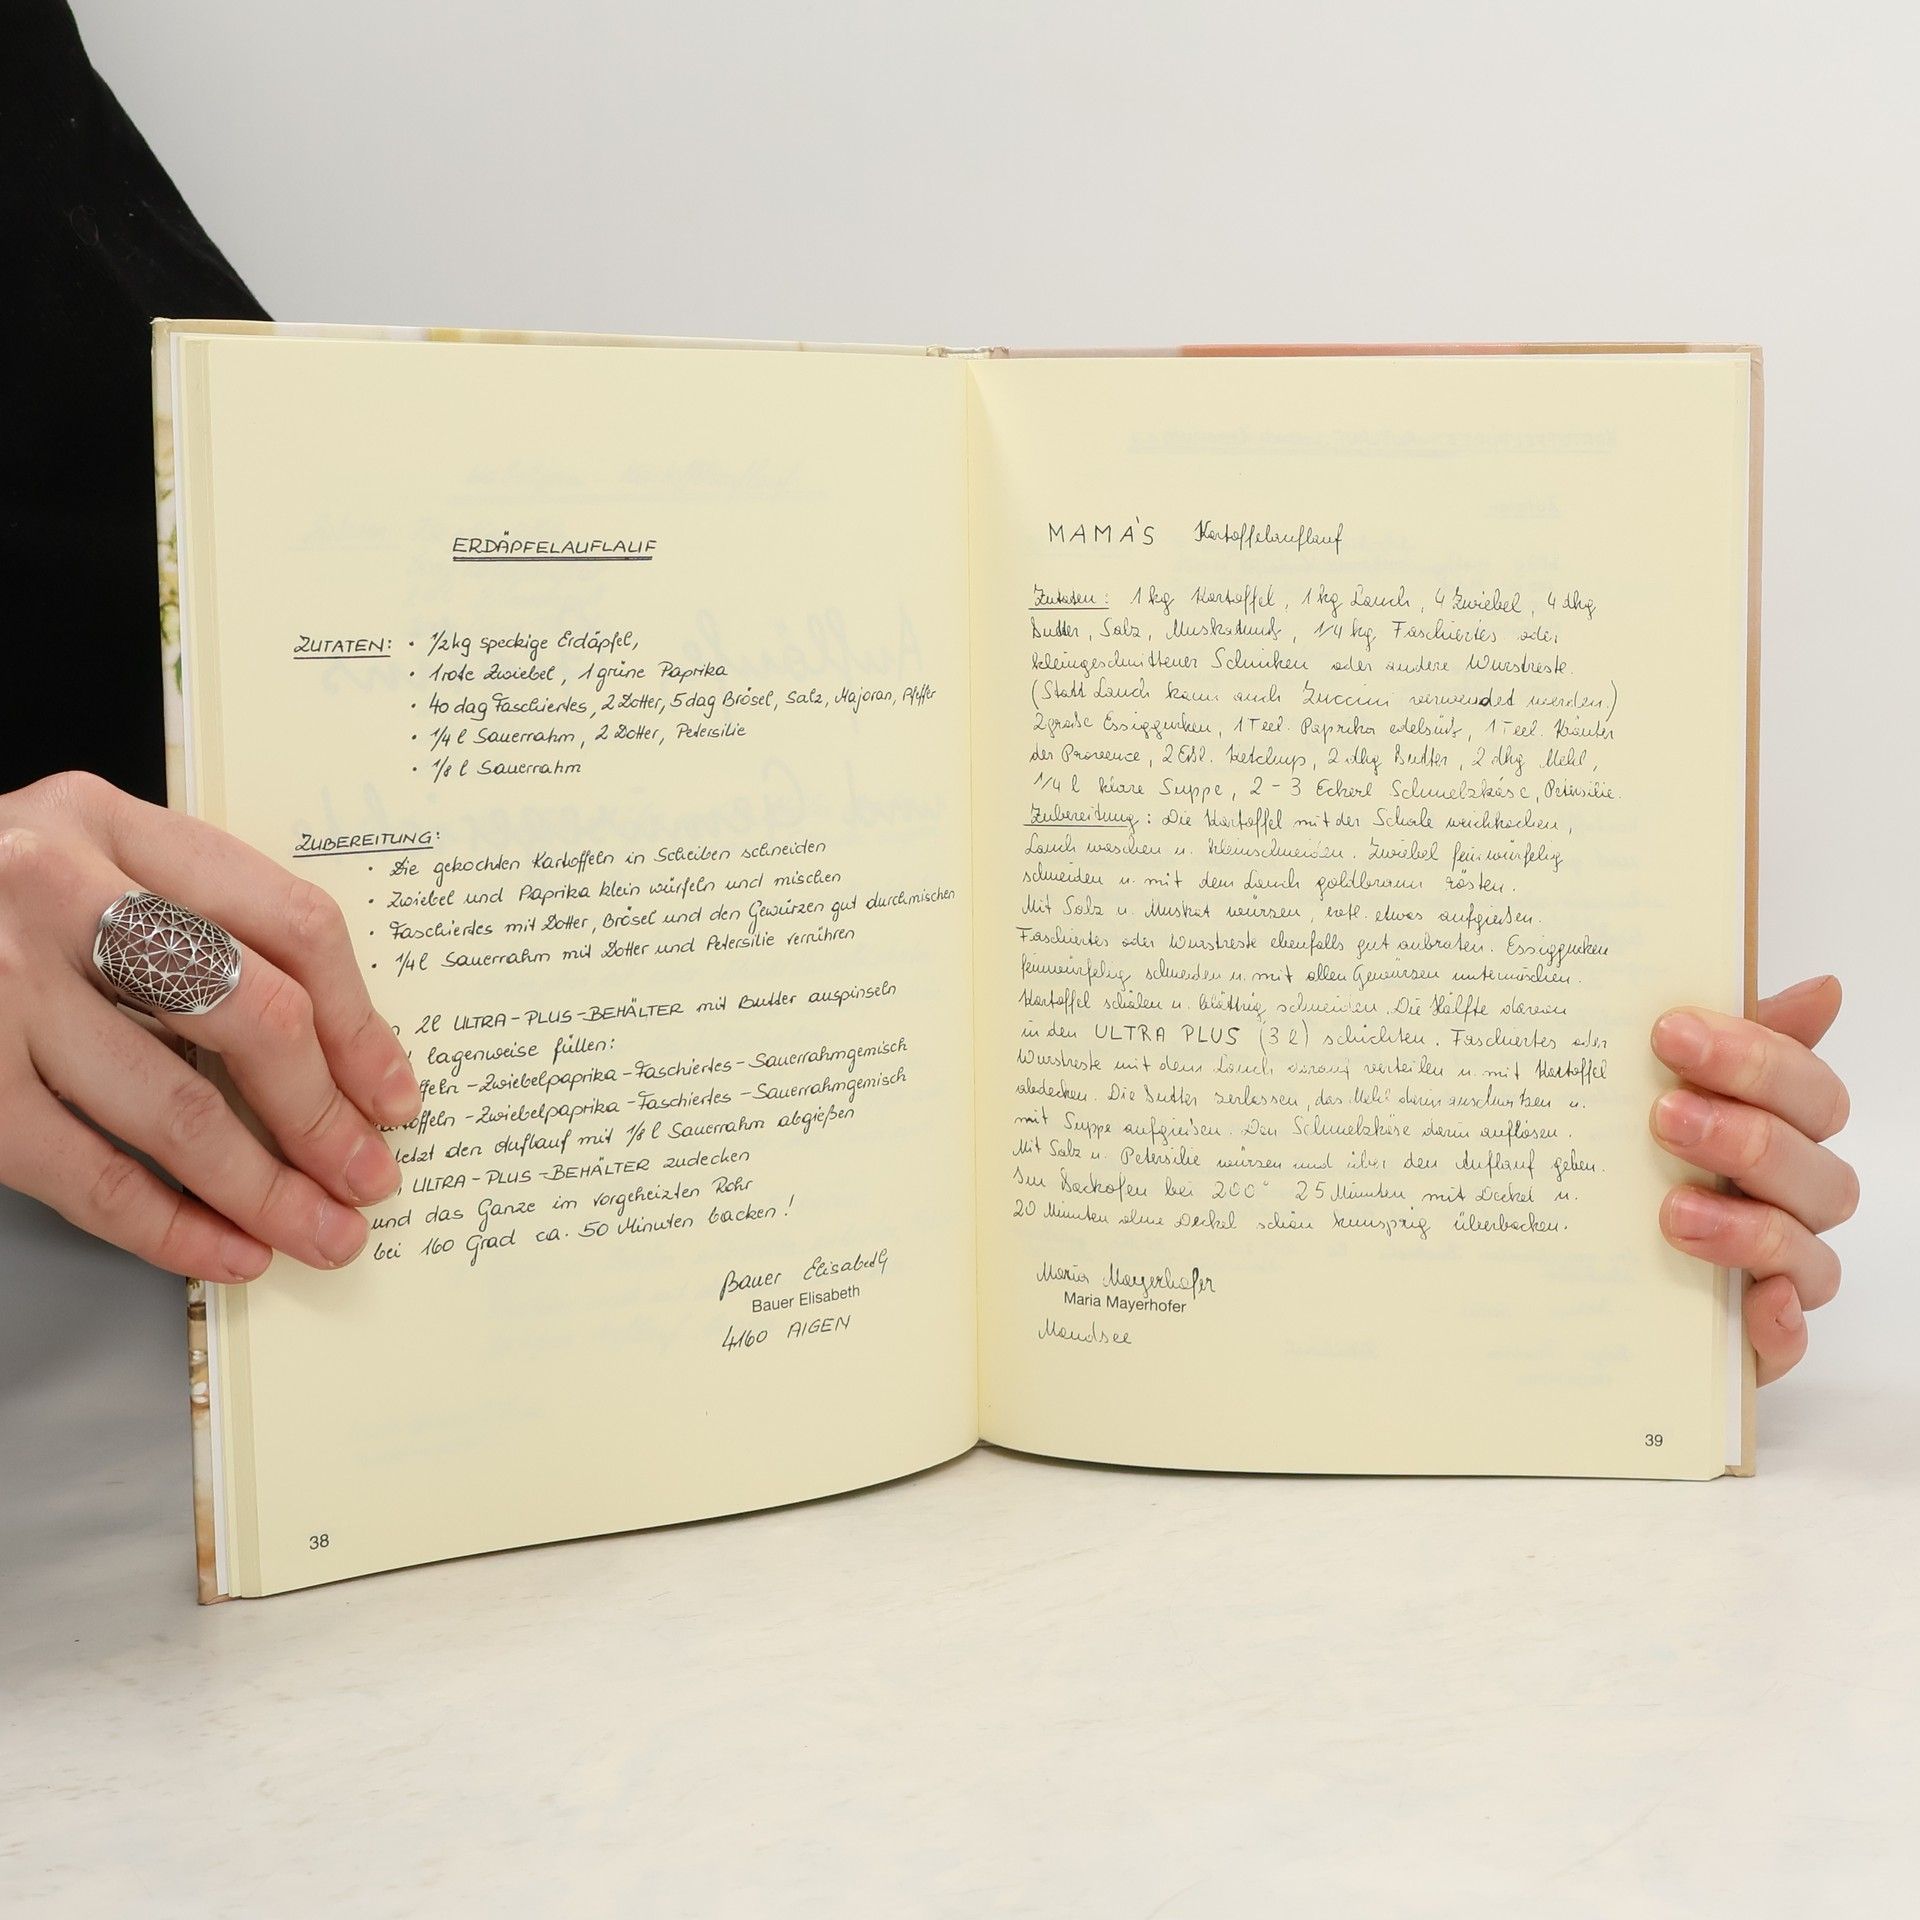 ERDÄPFELAUFLAUF
ZUTATEN: • 1/2 kg speckige Erdäpfel,
• 1 rote Zwiebel, 1 grüne Paprika
• 40 dag Faschiertes, 2 Dotter, 5 dag Brösel, Salz, Majoran, Pfeffer
• 1/4 l Sauerrahm, 2 Dotter, Petersilie
• 1/8 l Sauerrahm
ZUBEREITUNG:
• Die gekochten Kartoffeln in Scheiben schneiden
• Zwiebel und Paprika klein würfeln und mischen
• Faschiertes mit Dotter, Brösel und den Gewürzen gut durchmischen
• 1/4 l Sauerrahm mit Dotter und Petersilie verrühren
2l ULTRA-PLUS-BEHÄLTER mit Butter auspinseln
lagenweise füllen:
ffeln - Zwiebelpaprika - Faschiertes - Sauerrahmgemisch
artoffeln - Zwiebelpaprika - Faschiertes - Sauerrahmgemisch
letzt den Auflauf mit 1/8 l Sauerrahm abgießen
ULTRA-PLUS-BEHÄLTER zudecken
und das Ganze im vorgeheizten Rohr
bei 160 Grad ca. 50 Minuten backen!
Bauer Elisabeth
Bauer Elisabeth
4160 AIGEN
38
MAMA'S Kartoffelauflauf
Zutaten: 1 kg Kartoffel, 1 kg Lauch, 4 Zwiebel, 4 dkg
Butter, Salz, Muskatnuß, 1/4 kg Faschiertes oder
kleingeschnittener Schinken oder andere Wurstreste.
(Statt Lauch kann auch Zuccini verwendet werden.)
2 große Essiggurken, 1 Teel. Paprika edelsüß, 1 Teel. Kräuter
der Provence, 2 Eßl. Ketchup, 2 dkg Butter, 2 dkg Mehl,
1/4 l klare Suppe, 2 - 3 Eckerl Schmelzkäse, Petersilie.
Zubereitung: Die Kartoffel mit der Schale weichkochen,
Lauch waschen u. kleinschneiden. Zwiebel feinwürfelig
schneiden u. mit dem Lauch goldbraun rösten.
Mit Salz u. Muskat würzen, evtl. etwas aufgießen.
Faschiertes oder Wurstreste ebenfalls gut anbraten. Essiggurken
feinwürfelig schneiden u. mit allen Gewürzen untermischen.
Kartoffel schälen u. blättrig schneiden. Die Hälfte davon
in den ULTRA PLUS (3 l) schichten. Faschiertes oder
Wurstreste mit dem Lauch darauf verteilen u. mit Kartoffel
abdecken. Die Butter zerlassen, das Mehl darin anschwitzen u.
mit Suppe aufgießen. Den Schmelzkäse darin auflösen.
Mit Salz u. Petersilie würzen und über den Auflauf geben.
Im Backofen bei 200° 25 Minuten mit Deckel u.
20 Minuten ohne Deckel schön knusprig überbacken.
Maria Mayerhofer
Maria Mayerhofer
Mondsee
39